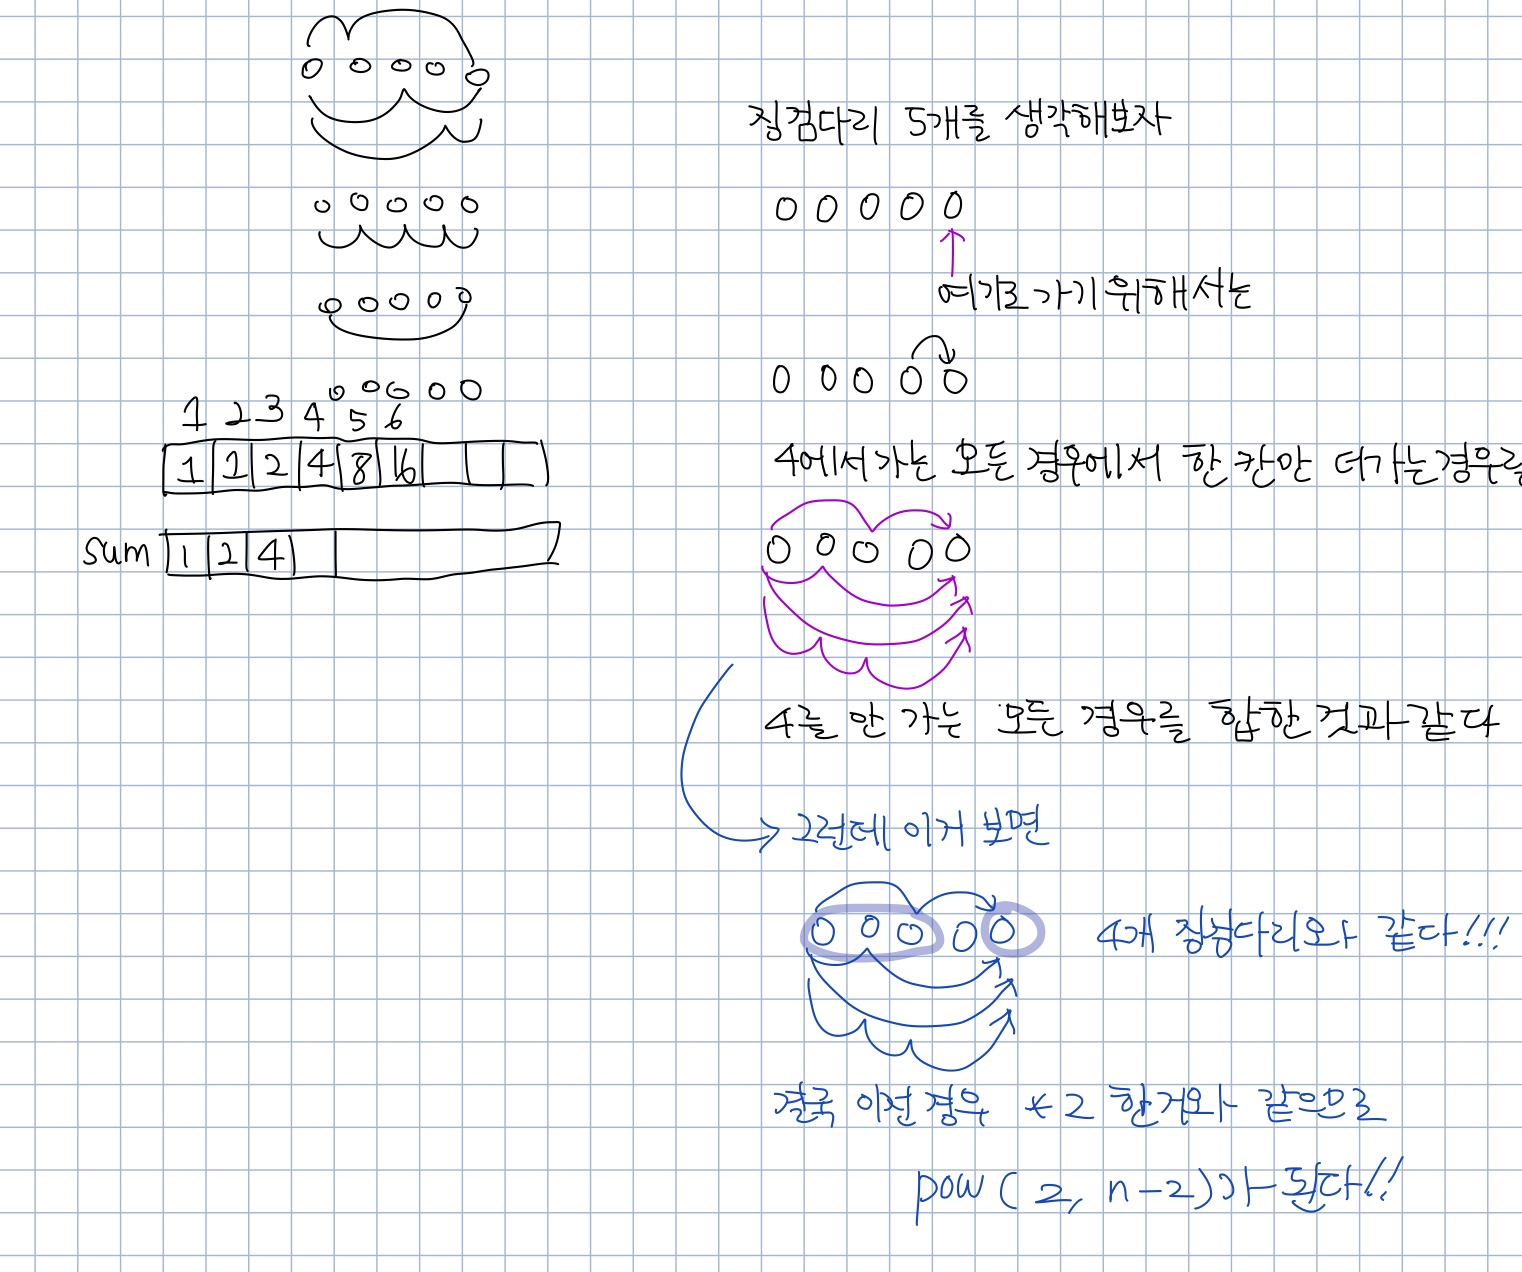 1 2 3 4 5 6
1 1 2 4 8 16
sum 1 2 4
징검다리 5개를 생각해보자
여기로 가기 위해서는
4에서 가는 모든 경우에서 한 칸만 더가는 경우를
4를 안 가는 모든 경우를 합한 것과 같다
그런데 이거 보면
4개 징검다리와 같다!!!
결국 이전 경우 *2 한거와 같으므로
pow(2, n-2)가 된다!!